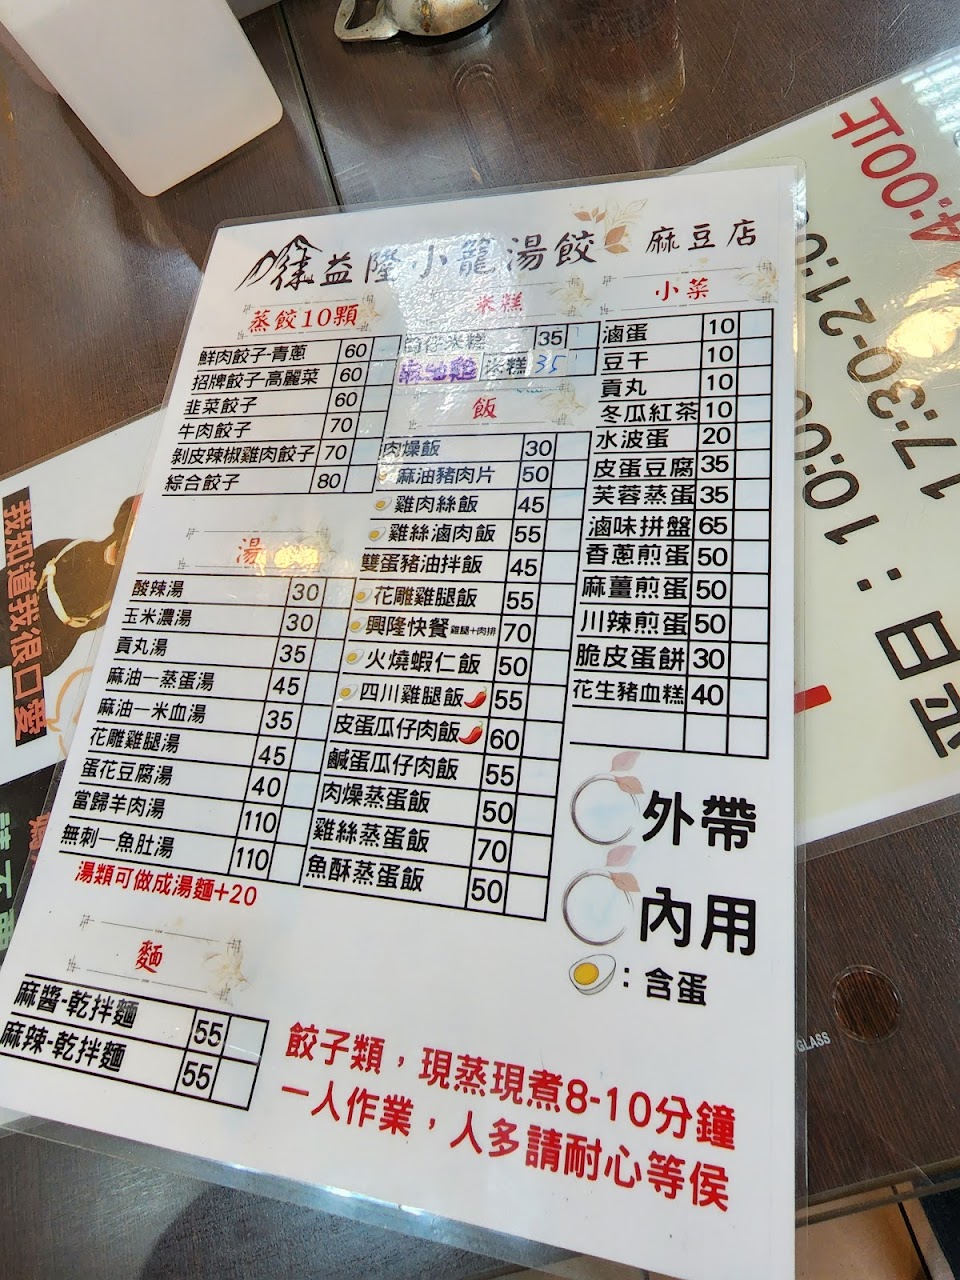 益隆小龍湯餃 麻豆店
蒸餃10顆
鮮肉餃子-青蔥 60
招牌餃子-高麗菜 60
韭菜餃子 60
牛肉餃子 70
剝皮辣椒雞肉餃子 70
綜合餃子 80
湯
酸辣湯 30
玉米濃湯 30
貢丸湯 35
麻油—蒸蛋湯 45
麻油—米血湯 35
花雕雞腿湯 45
蛋花豆腐湯 40
當歸羊肉湯 110
無刺—魚肚湯 110
湯類可做成湯麵+20
麵
麻醬-乾拌麵 55
麻辣-乾拌麵 55
米糕
筒仔米糕 35
米糕 35
飯
肉燥飯 30
麻油豬肉片 50
雞肉絲飯 45
雞絲滷肉飯 55
雙蛋豬油拌飯 45
花雕雞腿飯 55
興隆快餐 雞腿+肉排 70
火燒蝦仁飯 50
四川雞腿飯 55
皮蛋瓜仔肉飯 60
鹹蛋瓜仔肉飯 55
肉燥蒸蛋飯 50
雞絲蒸蛋飯 70
魚酥蒸蛋飯 50
小菜
滷蛋 10
豆干 10
貢丸 10
冬瓜紅茶 10
水波蛋 20
皮蛋豆腐 35
芙蓉蒸蛋 35
滷味拼盤 65
香蔥煎蛋 50
麻薑煎蛋 50
川辣煎蛋 50
脆皮蛋餅 30
花生豬血糕 40
外帶
內用
：含蛋
餃子類，現蒸現煮8-10分鐘
一人作業，人多請耐心等侯
我知道我很口愛
GLASS